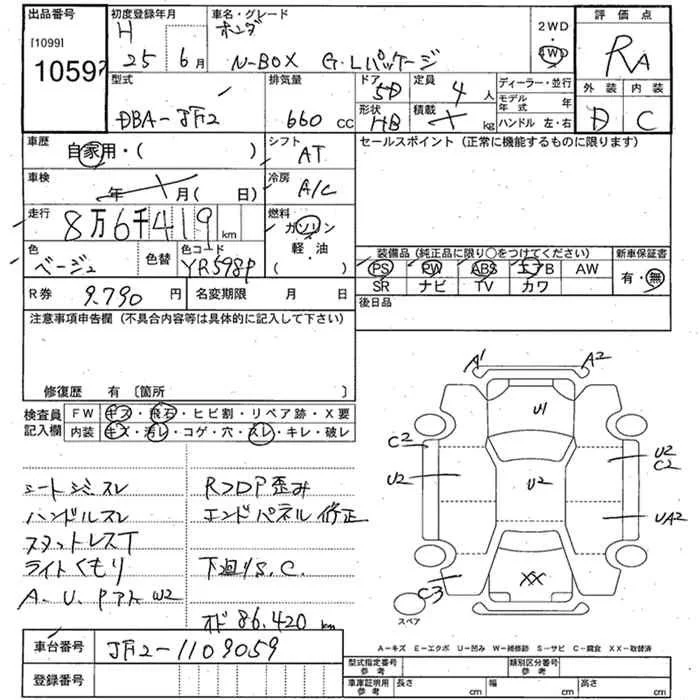 出品番号 初度登録年月 車名・グレード 2WD 評価点
[1099] H ホンダ 4WD RA
1059
25 6月 N-BOX G・Lパッケージ 外装 内装
D C
型式 排気量 ドア 5D 定員 4人 ディーラー・並行
モデル年式 年
DBA-JF2 660cc 形状 HB 積載 kg ハンドル 左・右
車歴 自家用・( ) シフト AT セールスポイント (正常に機能するものに限ります)
車検 年 月( 日) 冷房 A/C
走行 8万6千419km 燃料 ガソリン
軽・油
( )
色 ベージュ 色替 色コード YR598P 装備品 (純正品に限り○をつけてください) 新車保証書
PS PW ABS エアB AW 有・無
SR ナビ TV カワ
R券 9.790円 名変期限 月 日 後日品
注意事項申告欄 (不具合内容等は具体的に記入して下さい)
修復歴 有 〔箇所 〕
検査員記入欄 FW キズ・飛石・ヒビ割・リペア跡・X要
内装 キズ・汚レ・コゲ・穴・スレ・キレ・破レ
A1 A2
U1
C2 U2 C2
U2 U2 UA2
XX
C3
スペア
シートジミスレ Rフロア歪み
ハンドルスレ エンドパネル修正
スタットレスT
ライトくもり 下廻りS.C.
A.U.Pアト W2
オド86.420km
車台番号 JF2-1109059
登録番号
A−キズ E−エクボ U−凹み W−補修跡 S−サビ C−腐食 XX−取替済
型式指定番号参考 類別区分番号参考
車庫証明用参考 長さ cm 幅 cm 高さ cm